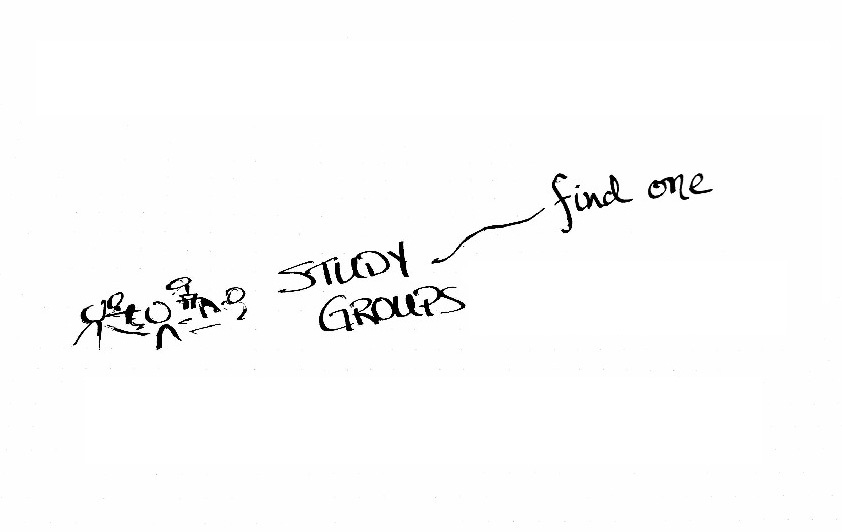 STUDY
GROUPS
find one